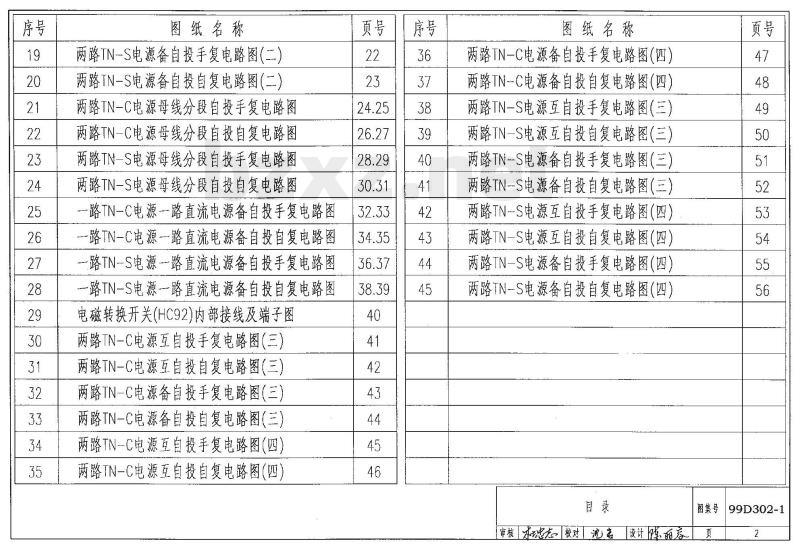 序号 图纸名称 页号
19 两路TN-S电源备自投手复电路图(二) 22
20 两路TN-S电源备自投自复电路图(二) 23
21 两路TN-C电源母线分段自投手复电路图 24.25
22 两路TN-C电源母线分段自投自复电路图 26.27
23 两路TN-S电源母线分段自投手复电路图 28.29
24 两路TN-S电源母线分段自投自复电路图 30.31
25 一路TN-C电源一路直流电源备自投手复电路图 32.33
26 一路TN-C电源一路直流电源备自投自复电路图 34.35
27 一路TN-S电源一路直流电源备自投手复电路图 36.37
28 一路TN-S电源一路直流电源备自投自复电路图 38.39
29 电磁转换开关(HC92)内部接线及端子图 40
30 两路TN-C电源互自投手复电路图(三) 41
31 两路TN-C电源互自投自复电路图(三) 42
32 两路TN-C电源备自投手复电路图(三) 43
33 两路TN-C电源备自投自复电路图(三) 44
34 两路TN-C电源互自投手复电路图(四) 45
35 两路TN-C电源互自投自复电路图(四) 46
序号 图纸名称 页号
36 两路TN-C电源备自投手复电路图(四) 47
37 两路TN-C电源备自投自复电路图(四) 48
38 两路TN-S电源互自投手复电路图(三) 49
39 两路TN-S电源互自投自复电路图(三) 50
40 两路TN-S电源备自投手复电路图(三) 51
41 两路TN-S电源备自投自复电路图(三) 52
42 两路TN-S电源互自投手复电路图(四) 53
43 两路TN-S电源互自投自复电路图(四) 54
44 两路TN-S电源备自投手复电路图(四) 55
45 两路TN-S电源备自投自复电路图(四) 56
目录 图集号 99D302-1
审核 校对 设计 页 2